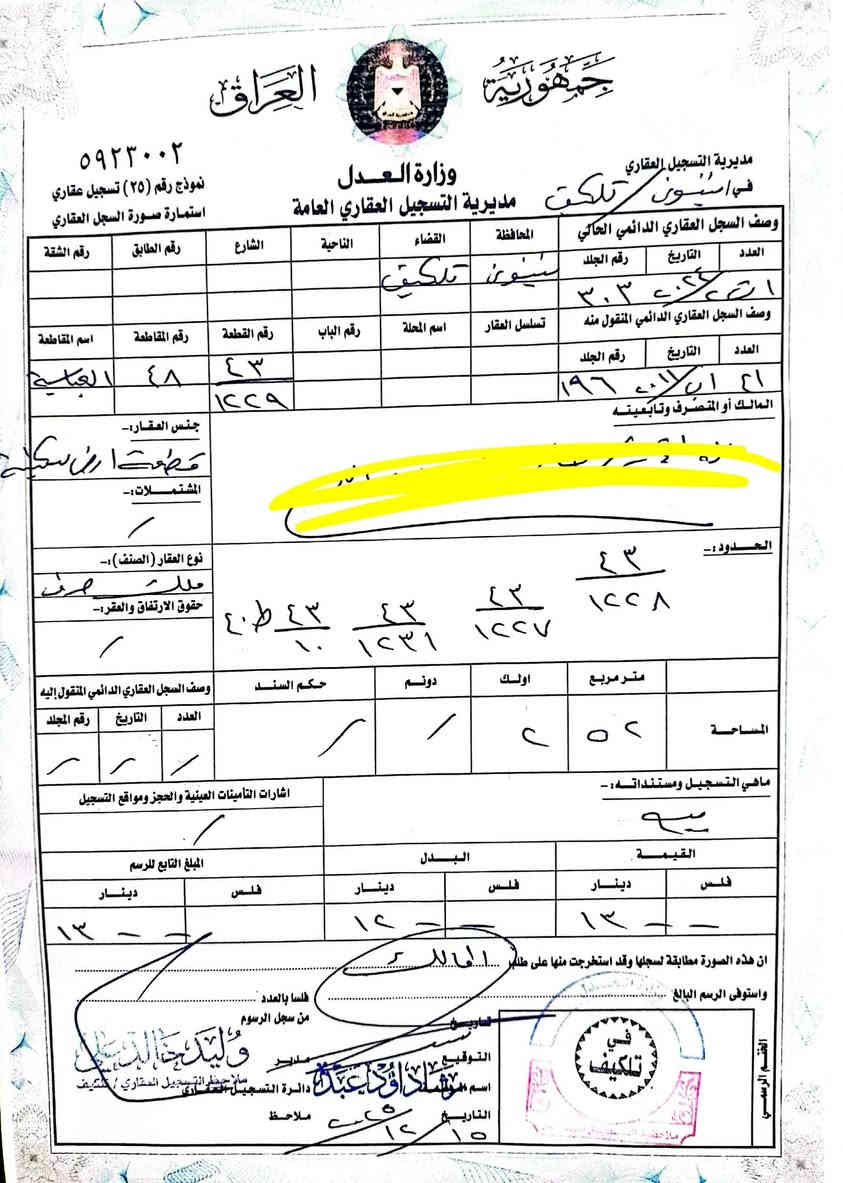 جمهورية العراق
٥٩٢٣٠٠٢
نموذج رقم (٢٥) تسجيل عقاري
استمارة صورة السجل العقاري
وزارة العدل
مديرية التسجيل العقاري العامة
مديرية التسجيل العقاري
في نينوى / تلكيف
وصف السجل العقاري الدائمي الحالي
المحافظة القضاء الناحية الشارع رقم الطابق رقم الشقة
العدد التاريخ رقم الجلد
نينوى تلكيف
٢٠٢٤ ٣٠٣
وصف السجل العقاري الدائمي المنقول منه
تسلسل العقار اسم المحلة رقم الباب رقم القطعة رقم المقاطعة اسم المقاطعة
العدد التاريخ رقم الجلد
٢١ اب/٢٠١١ ١٩٦
٤٣/١٢٢٩ ٤٨ العباسية
المالك أو المتصرف وتابعيته
جنس العقار:-
قطعة ارض سكنية
المشتملات:-
/
الحدود:-
٤٣/١٢٢٨ ٤٣/١٢٢٧ ٤٣/١٢٣١ ٤٣/١٠ ط٤٠
نوع العقار (الصنف):-
ملك صرف
حقوق الارتفاق والعقر:-
/
متر مربع اولك دونم حكم السند
وصف السجل العقاري الدائمي المنقول إليه
العدد التاريخ رقم المجلد
المساحة ٥٢ ٢ / /
/ / /
ماهي التسجيل ومستنداته:-
اشارات التأمينات العينية والحجز ومواقع التسجيل
/
القيمة البدل المبلغ التابع للرسم
فلس دينار فلس دينار فلس دينار
١٣ -- ١٢ -- ١٣ --
ان هذه الصورة مطابقة لسجلها وقد استخرجت منها على طلب المالك
واستوفى الرسم البالغ فلسا بالعدد
لتاريخ من سجل الرسوم
التوقيع مدير
اسم دائرة التسجيل العقاري
التاريخ ١٥/١٢/٢٠٢٥ ملاحظ
وليد خالد
ملاحظ التسجيل العقاري / تلكيف
داود عبد
الختم الرسمي
في
تلكيف